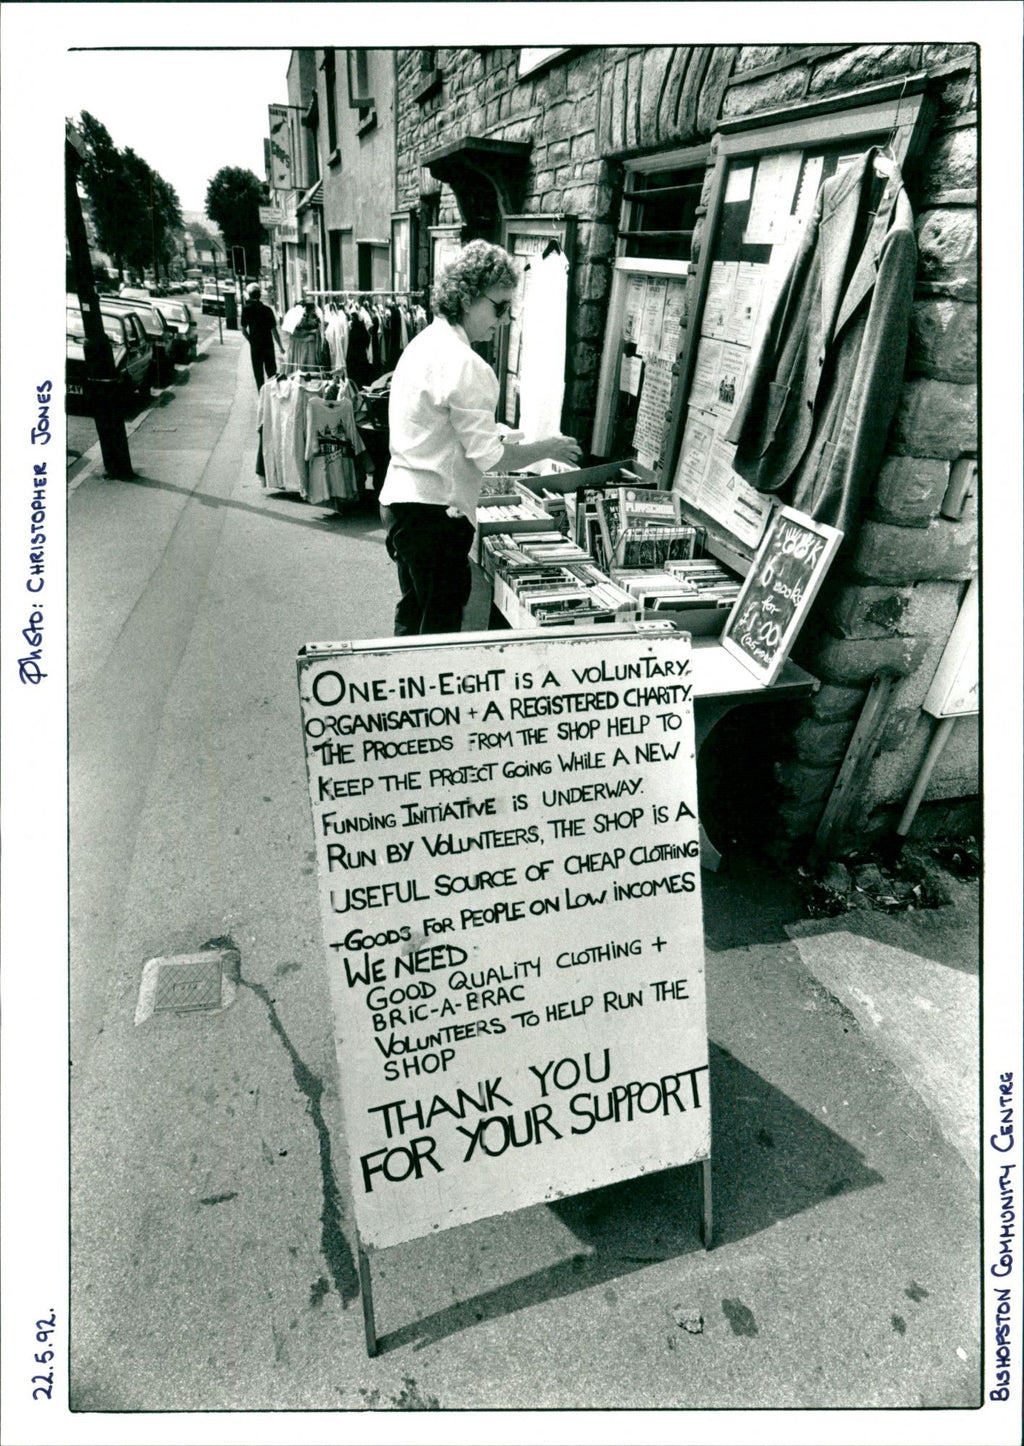 PHOTO: CHRISTOPHER JONES
22.5.92.
BISHOPSTON COMMUNITY CENTRE
PLAYSCHOOL
BOOKS
for
£1.00
ONE-IN-EIGHT IS A VOLUNTARY
ORGANISATION + A REGISTERED CHARITY.
THE PROCEEDS FROM THE SHOP HELP TO
KEEP THE PROJECT GOING WHILE A NEW
FUNDING INITIATIVE IS UNDERWAY.
RUN BY VOLUNTEERS, THE SHOP IS A
USEFUL SOURCE OF CHEAP CLOTHING
+ GOODS FOR PEOPLE ON LOW INCOMES
WE NEED
GOOD QUALITY CLOTHING +
BRIC-A-BRAC
VOLUNTEERS TO HELP RUN THE
SHOP
THANK YOU
FOR YOUR SUPPORT